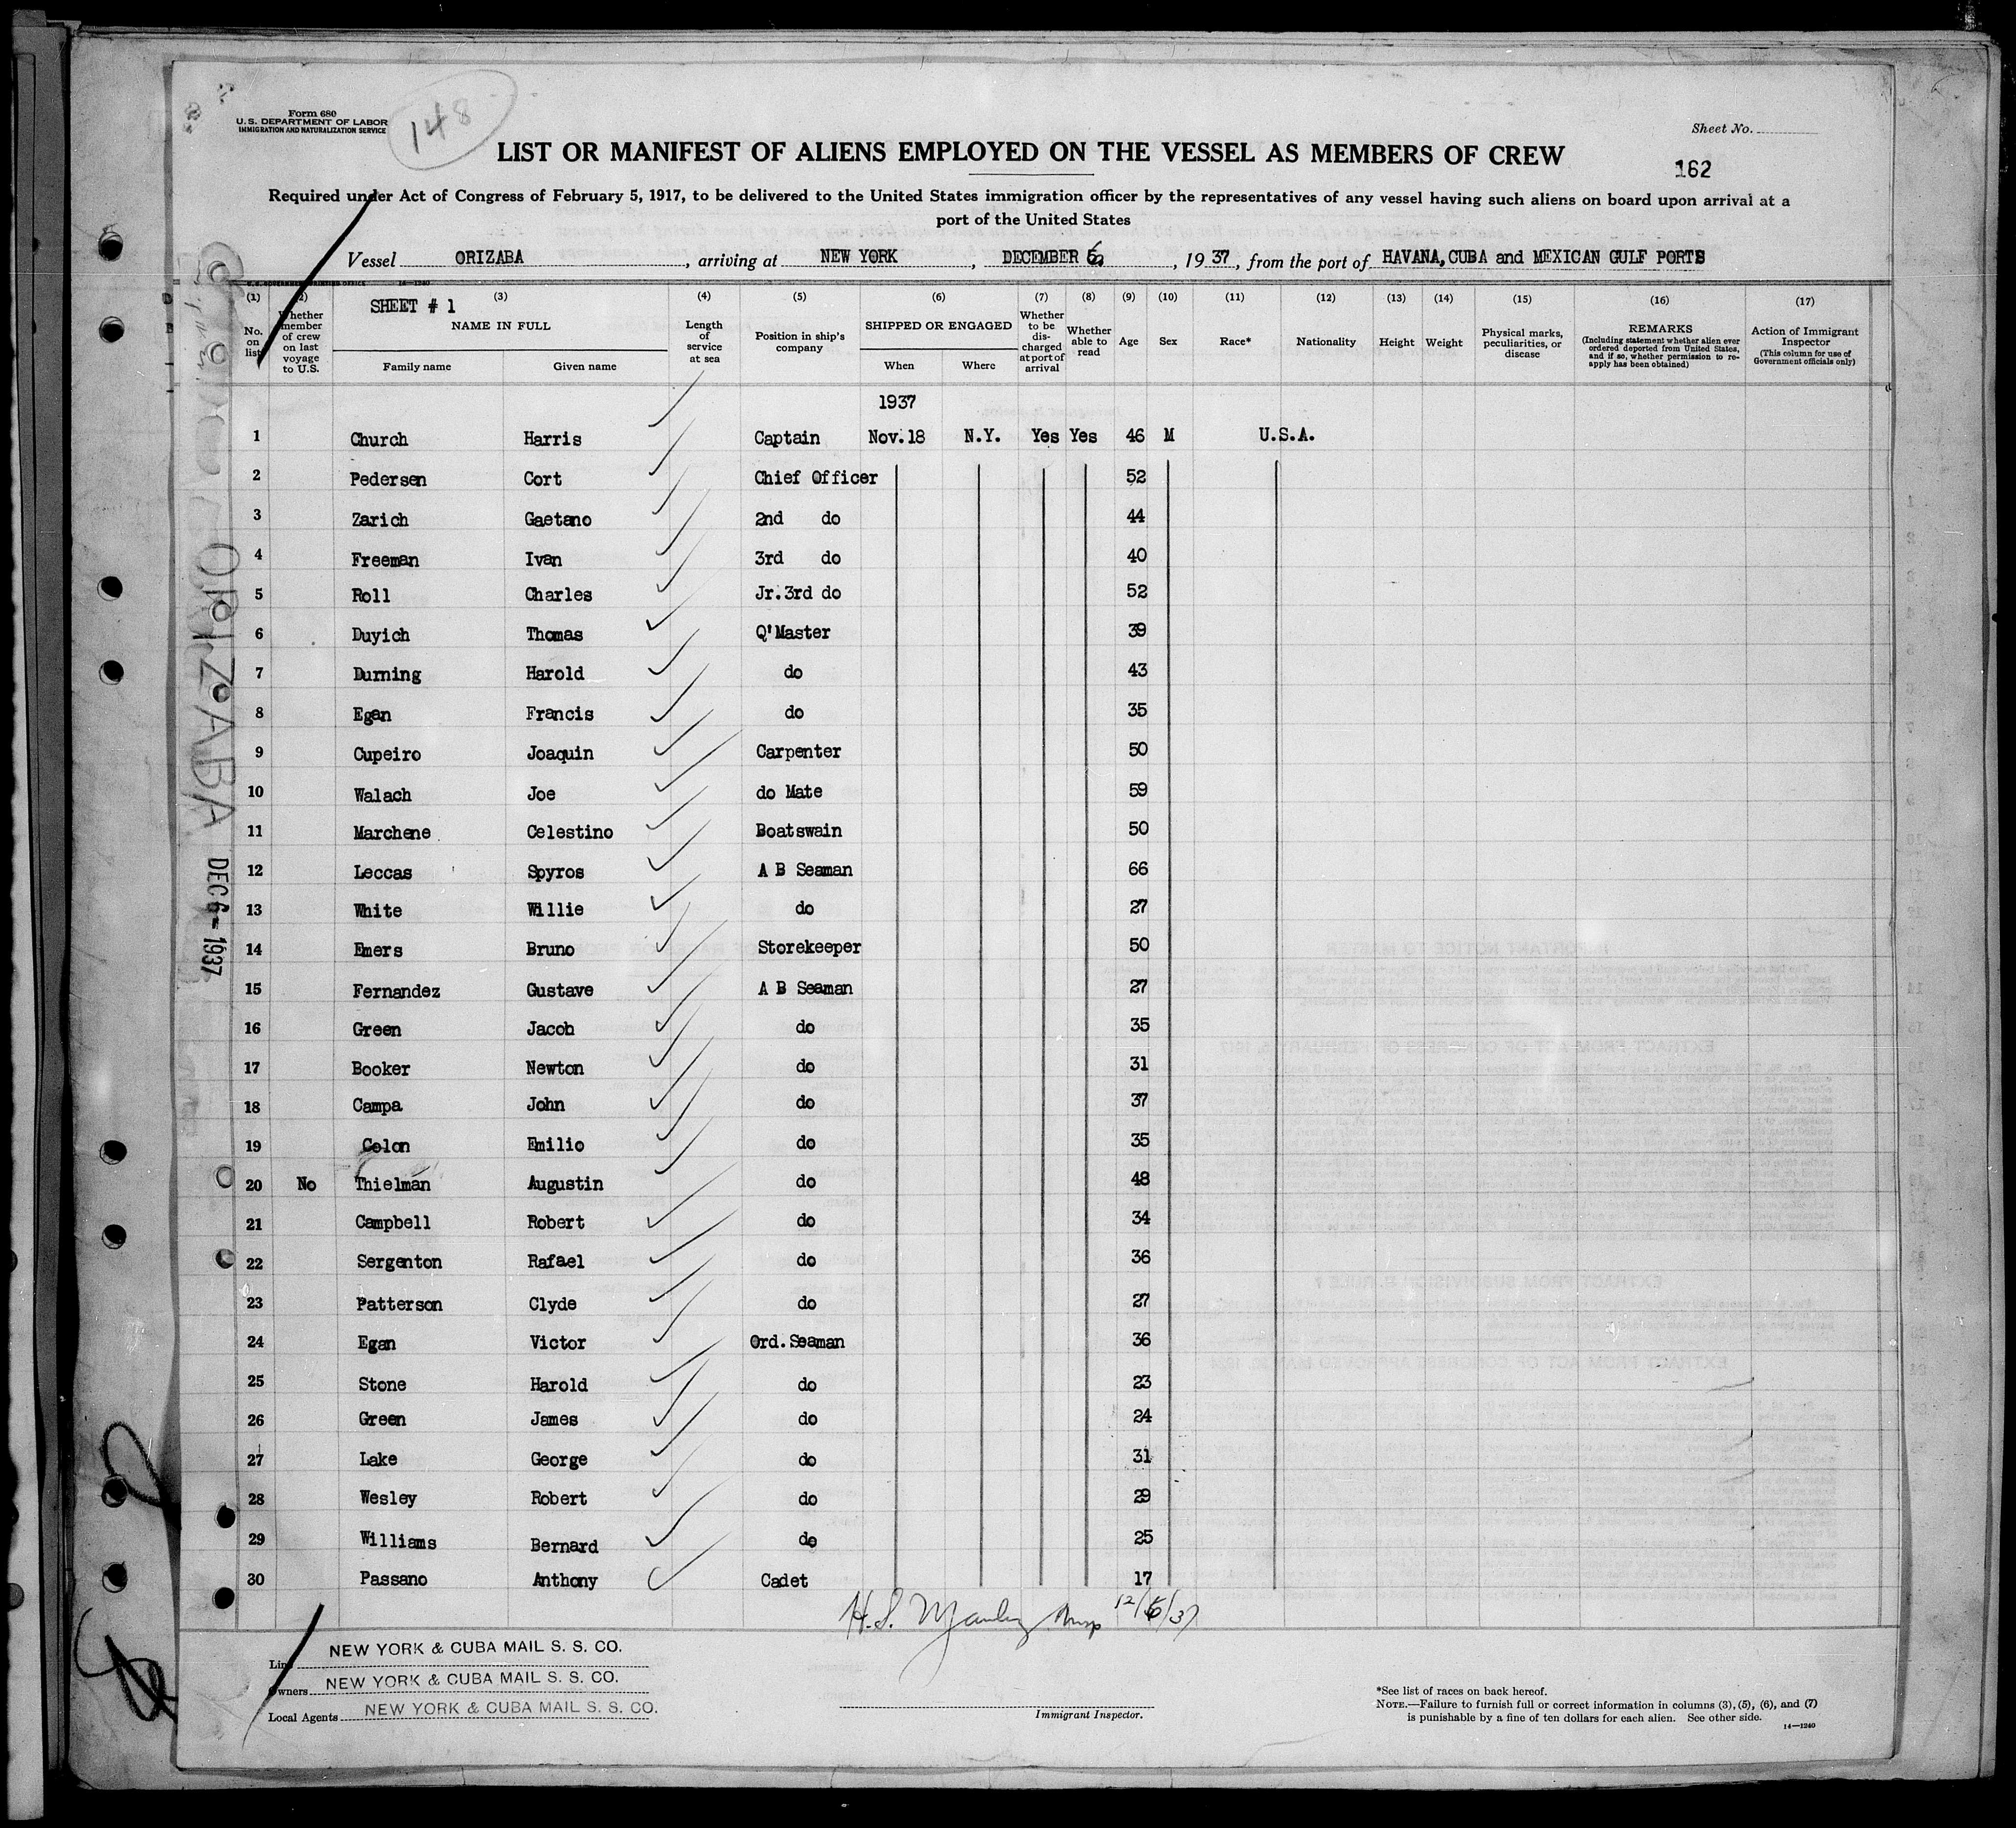 Form 680
U.S. DEPARTMENT OF LABOR
IMMIGRATION AND NATURALIZATION SERVICE
148
Sheet No.
LIST OR MANIFEST OF ALIENS EMPLOYED ON THE VESSEL AS MEMBERS OF CREW
162
Required under Act of Congress of February 5, 1917, to be delivered to the United States immigration officer by the representatives of any vessel having such aliens on board upon arrival at a
port of the United States
Vessel ORIZABA, arriving at NEW YORK, DECEMBER 6, 1937, from the port of HAVANA, CUBA and MEXICAN GULF PORTS
U.S. GOVERNMENT PRINTING OFFICE 14—1240
(1) (2) (3) (4) (5) (6) (7) (8) (9) (10) (11) (12) (13) (14) (15) (16) (17)
SHEET # 1
No. on list
Whether member of crew on last voyage to U.S.
NAME IN FULL
Family name
Given name
Length of service at sea
Position in ship's company
SHIPPED OR ENGAGED
When
Where
Whether to be discharged at port of arrival
Whether able to read
Age
Sex
Race*
Nationality
Height
Weight
Physical marks, peculiarities, or disease
REMARKS
(Including statement whether alien ever ordered deported from United States, and if so, whether permission to reapply has been obtained)
Action of Immigrant Inspector
(This column for use of Government officials only)
1937
1 Church Harris Captain Nov.18 N.Y. Yes Yes 46 M U.S.A.
2 Pedersen Cort Chief Officer 52
3 Zarich Gaetano 2nd do 44
4 Freeman Ivan 3rd do 40
5 Roll Charles Jr.3rd do 52
6 Duyich Thomas Q'Master 39
7 Durning Harold do 43
8 Egan Francis do 35
9 Cupeiro Joaquin Carpenter 50
10 Walach Joe do Mate 59
11 Marchene Celestino Boatswain 50
12 Leccas Spyros A B Seaman 66
13 White Willie do 27
14 Emers Bruno Storekeeper 50
15 Fernandez Gustave A B Seaman 27
16 Green Jacob do 35
17 Booker Newton do 31
18 Campa John do 37
19 Colon Emilio do 35
20 No Thielman Augustin do 48
21 Campbell Robert do 34
22 Sergenton Rafael do 36
23 Patterson Clyde do 27
24 Egan Victor Ord. Seaman 36
25 Stone Harold do 23
26 Green James do 24
27 Lake George do 31
28 Wesley Robert do 29
29 Williams Bernard do 25
30 Passano Anthony Cadet 17
ORIZABA
DEC 6 - 1937
H.S. 12/6/37
Line NEW YORK & CUBA MAIL S. S. CO.
Owners NEW YORK & CUBA MAIL S. S. CO.
Local Agents NEW YORK & CUBA MAIL S. S. CO.
Immigrant Inspector.
*See list of races on back hereof.
NOTE.—Failure to furnish full or correct information in columns (3), (5), (6), and (7)
is punishable by a fine of ten dollars for each alien. See other side.
14—1240